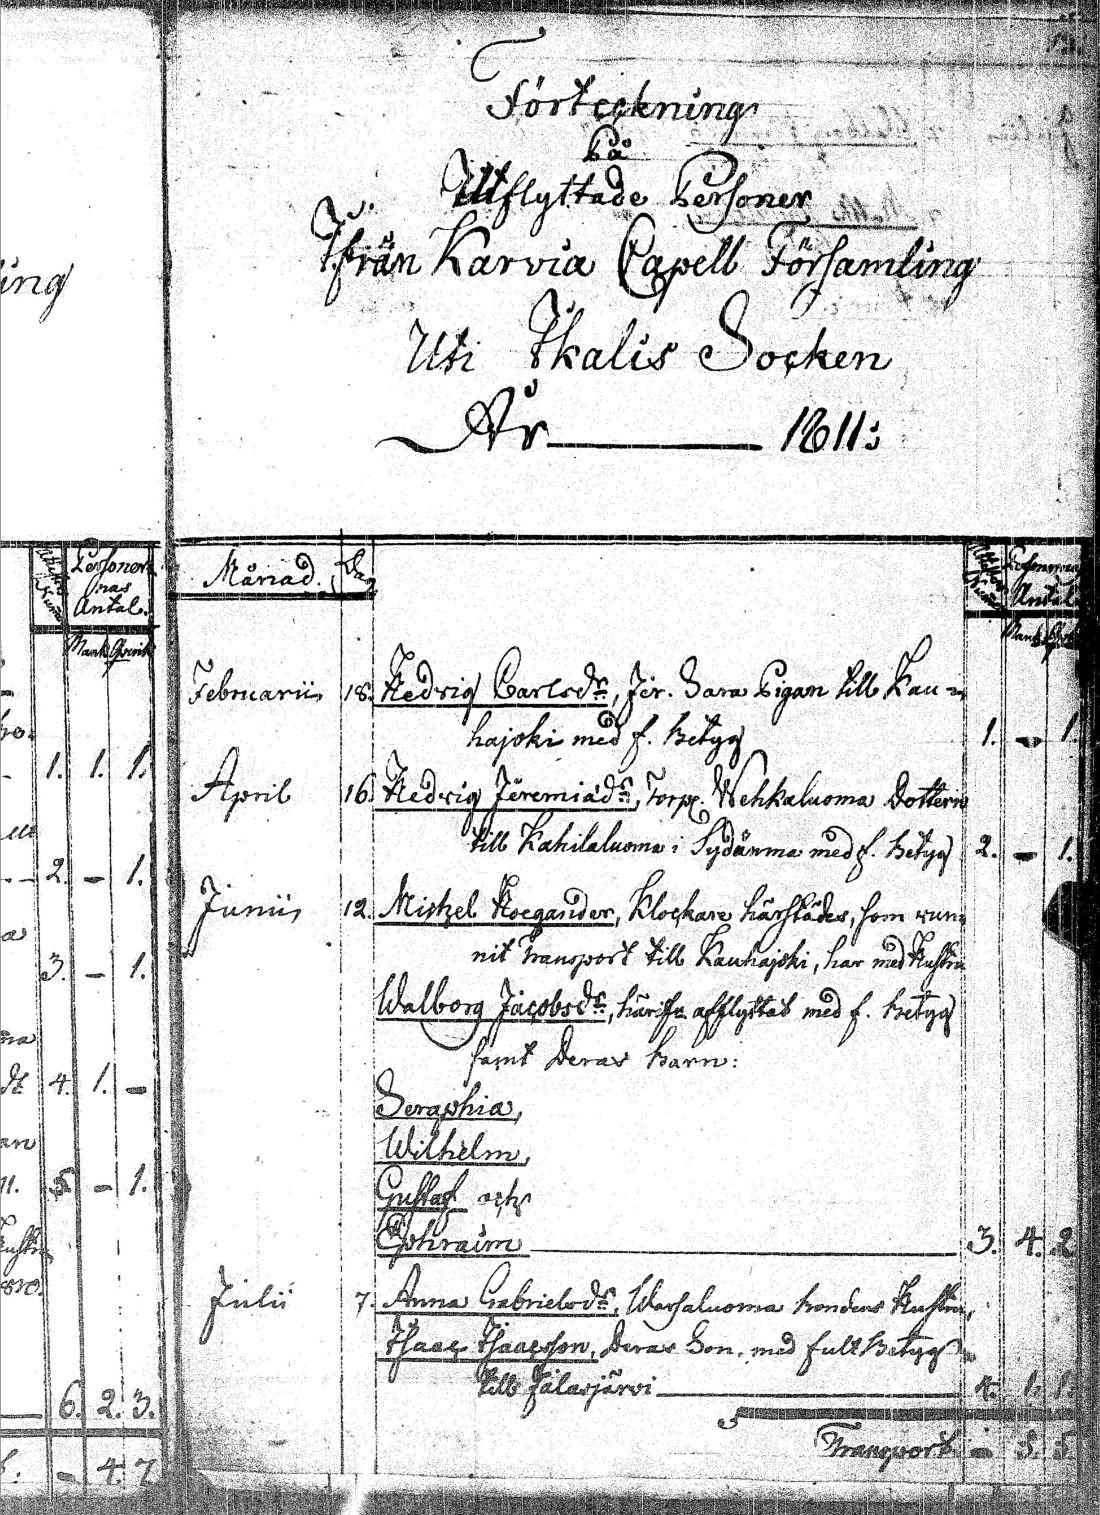 ing
Förteckning
På
Utflyttade Personer
Ifrån Karvia Capell Församling
Uti Ikalis Socken
År 1811:
Personer
nas
Antal.
Mank Qvink
1. 1. 1.
2. - 1.
3. - 1.
4. 1. -
5. - 1.
6. 2. 3.
- 4. 7
Månad. Dag
Personernas
Antal
Mank Qvink
Februarii 18. Hedvig Carlsdr, Jer. Sara Pigan till Kau=
hajoki med f. betyg 1. - 1.
April 16. Hedvig Jeremiædr, Torp. Wehkaluoma Dottern
till Kahilaluoma i Sydänma med f. betyg 2. - 1.
Junii 12. Michel Hoegander, Klockare härstädes, som vun-
nit Transport till Kauhajoki, har med Hustru
Walborg Jacobsdr, härifr. afflyttat med f. betyg
samt Deras barn:
Seraphia,
Wilhelm,
Gustaf och
Ephraim 3. 4. 2
Julii 7. Anna Gabrielsdr, Warsaluoma bondens Hustru,
Isaac Isaacsson, Deras Son, med fult Betyg
till Jalasjärvi 4. 1. 1.
Transport - 5. 5.